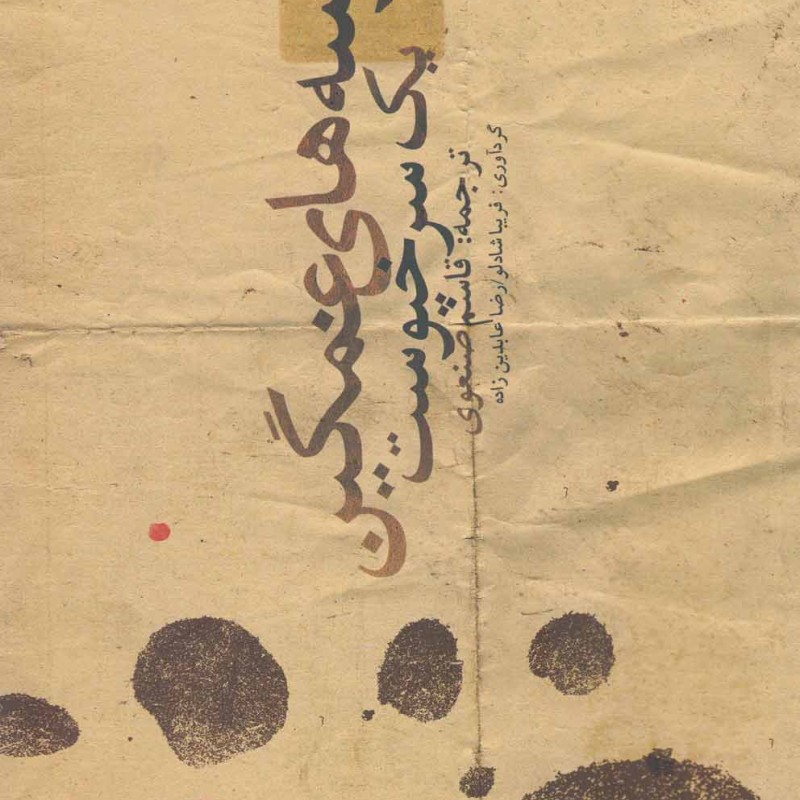 های غمگین
یک سرخپوست
ترجمه: قاسم صنعوی
گردآوری: فریبا شادلو/رضا عابدین زاده